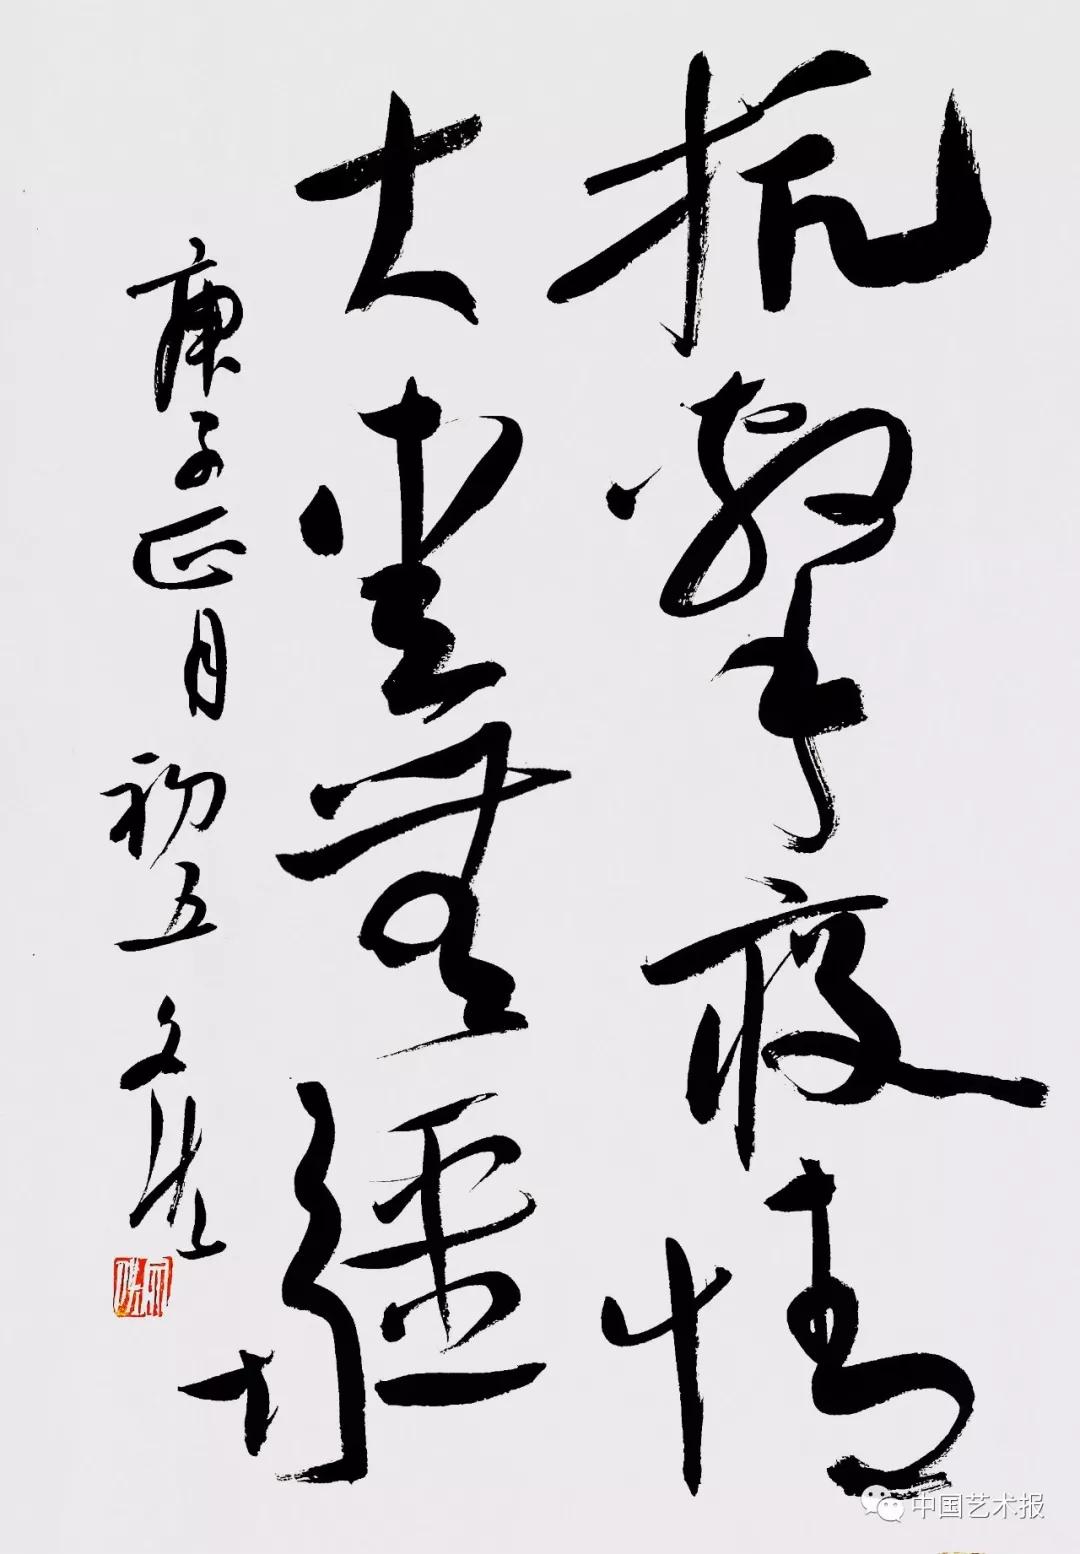 抗擊疫情
大愛無疆
庚子正月初五 文
中国艺术报